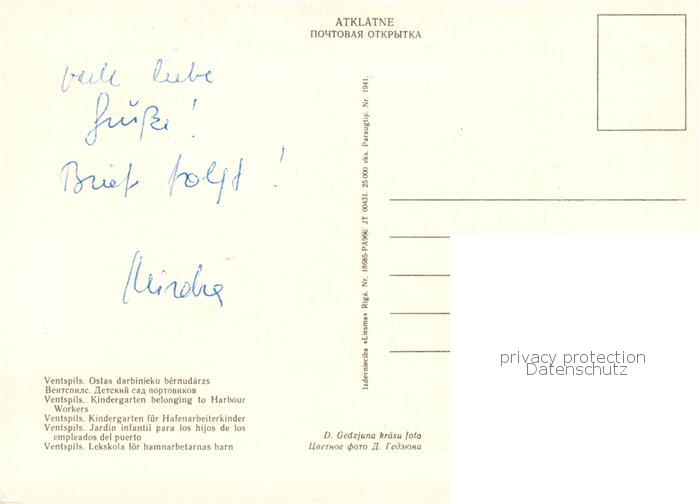 ATKLĀTNE
ПОЧТОВАЯ ОТКРЫТКА
viele liebe
Grüße!
Brief folgt!
Ventspils. Ostas darbinieku bērnudārzs
Вентспилс. Детский сад портовиков
Ventspils. Kindergarten belonging to Harbour
Workers
Ventspils. Kindergarten für Hafenarbeiterkinder
Ventspils. Jardin infantil para los hijos de los
empleados del puerto
Ventspils. Lekskola för hamnarbetarnas barn
Izdevniecība «Liesma» Rīgā. Nr. 18685-PA966. JT 00431. 25 000 eks. Paraugtip. Nr. 1941.
D. Gedzjuna krāsu foto
Цветное фото Д. Гедзюна
privacy protection
Datenschutz